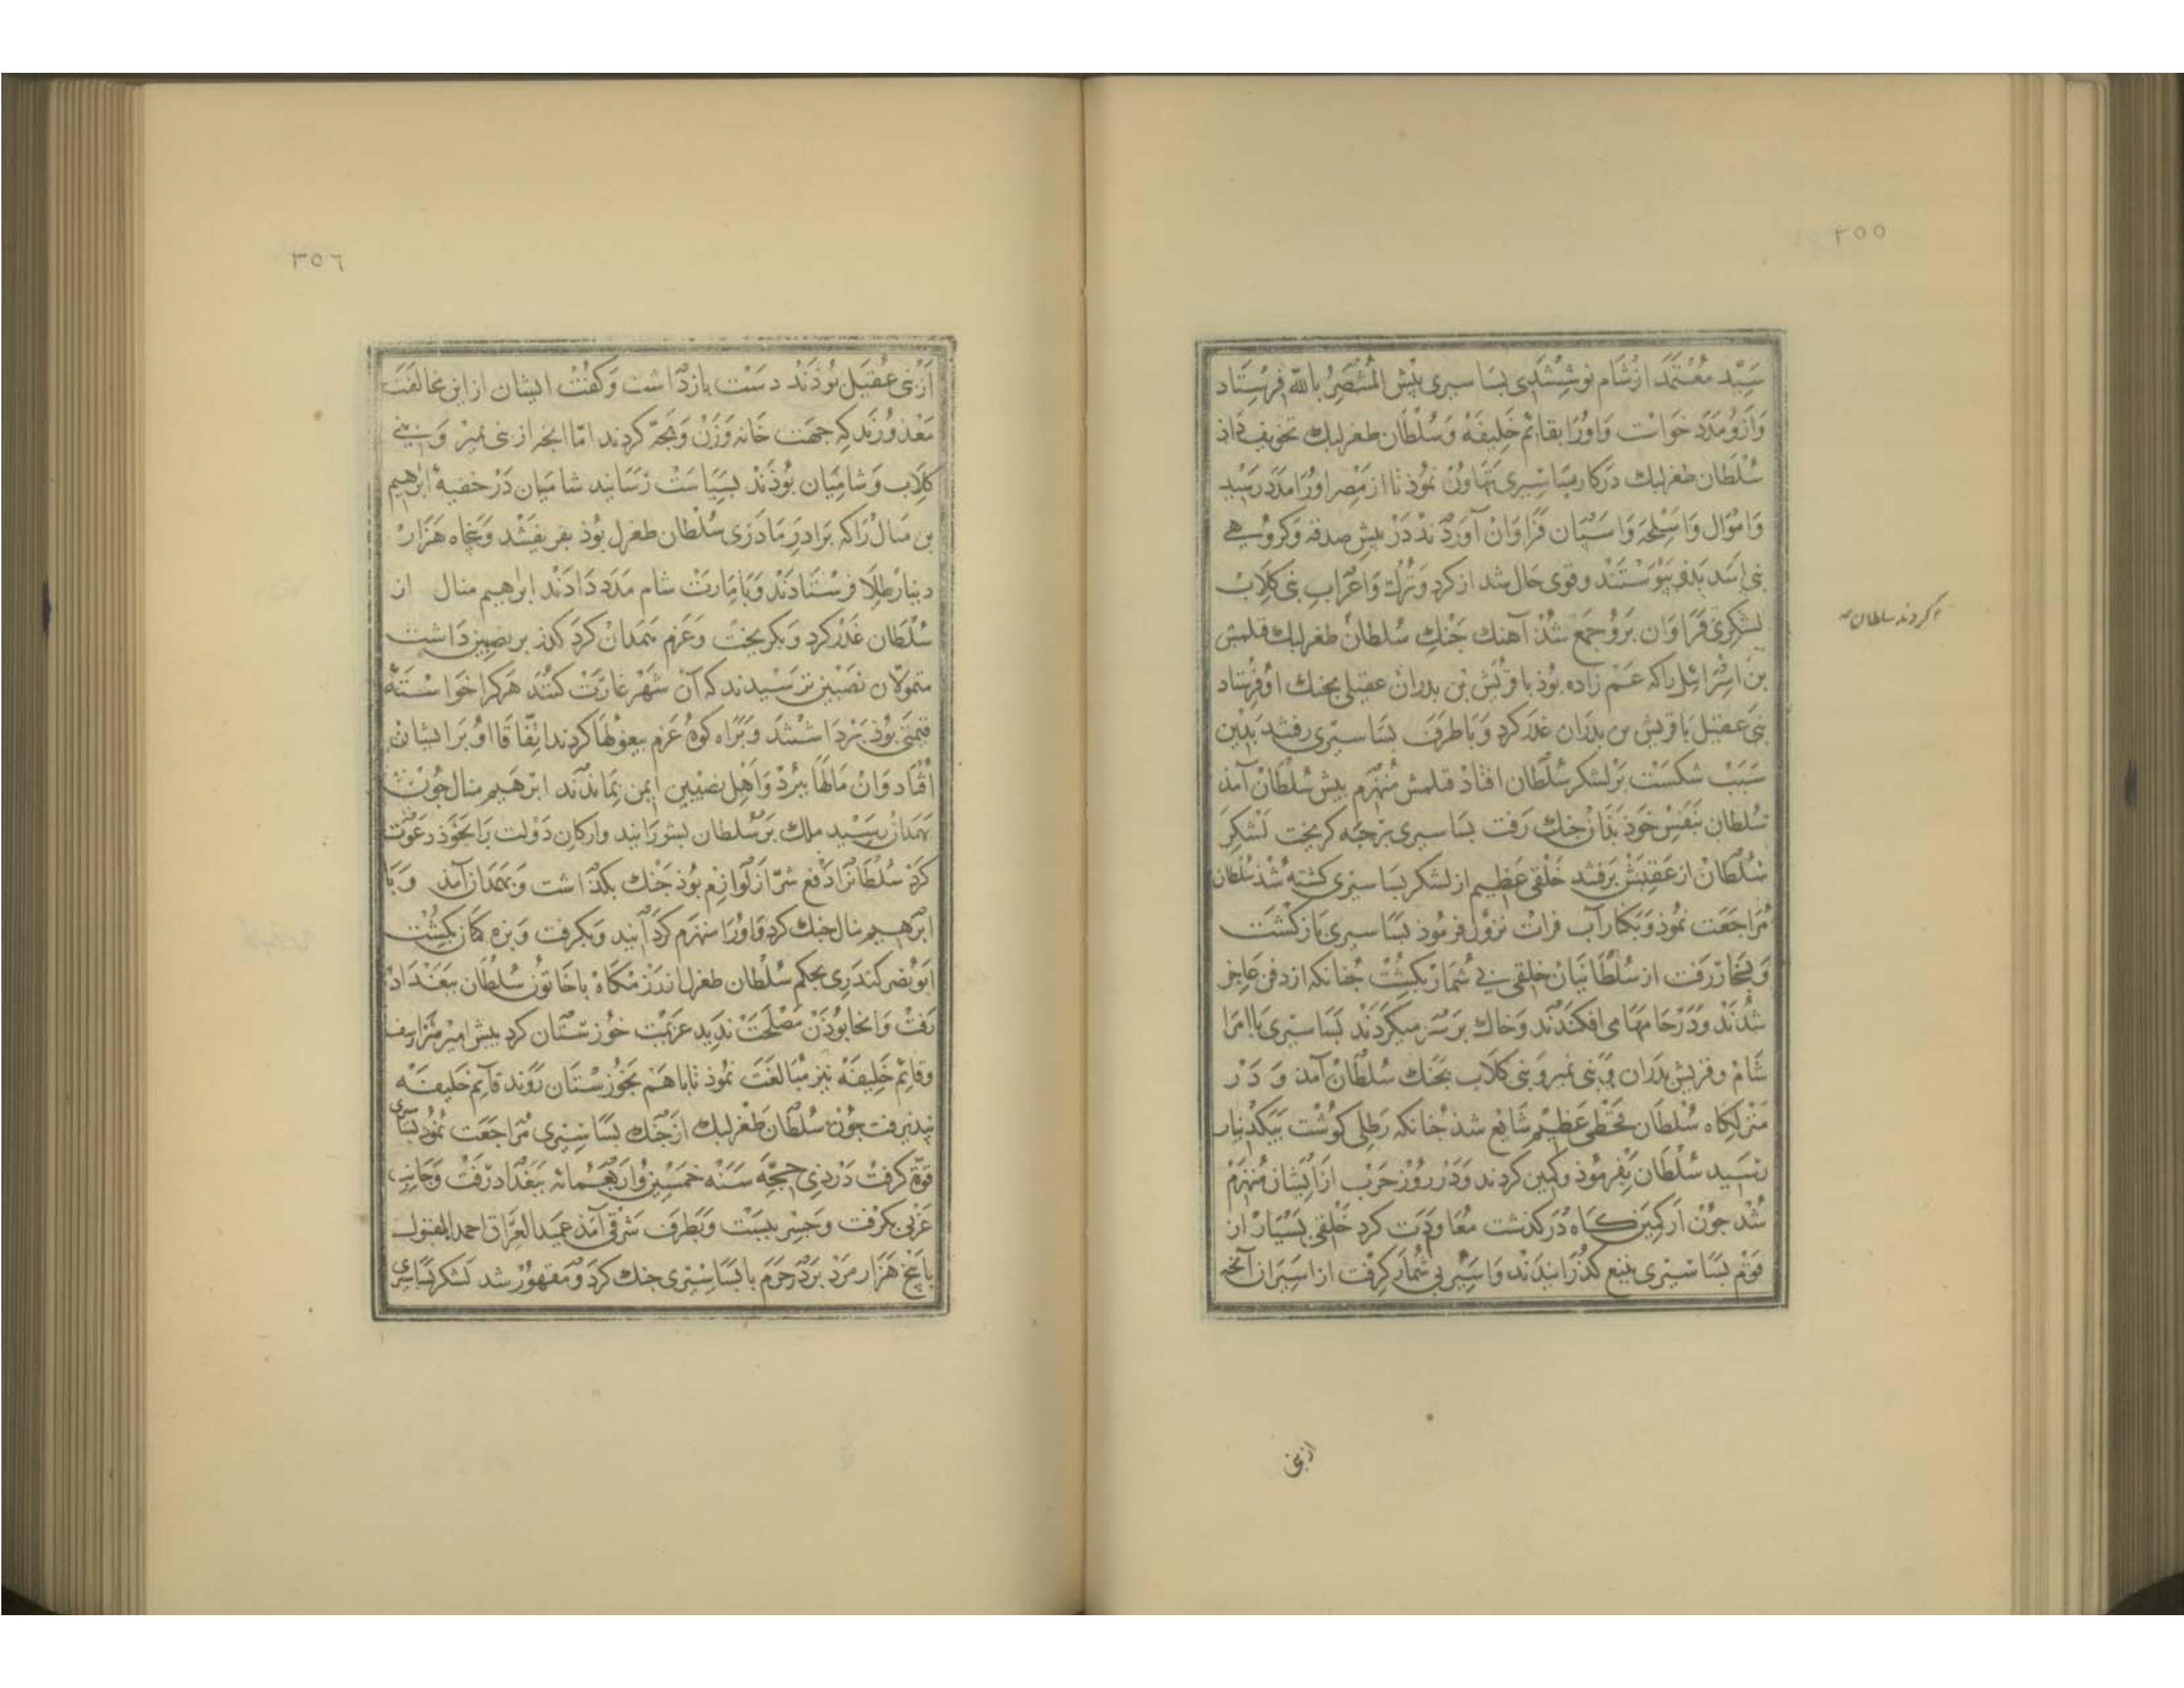 ٣٥٥
سَیّد مُعْتَمَد از شام نوشتندی بساسیری پیش المستنصر بالله فرستاد
وازو مدد خواست و اورا بقائم خلیفه و سلطان طغرلبک تخویف داذ
سلطان طغرلبک در کار بساسیری تهاون نموذ تا از مصر اورا مدد رسید
و اموال و اسلحه و اسپان فراوان آوردند در پیش صدقه و کروهی
بنی اسد بذو پیوستند و قوی حال شد از کرد و ترک و اعراب بنی کلاب
لشکری فراوان برو جمع شذ آهنک جنک سلطان طغرلبک قلمش
بن اسرائیل را که عم زاده بوذ با قریش بن بدران عقیلی بجنک او فرستاد
بنی عقیل با قریش بن بدران غدر کرد و با طرف بساسیری رفتند بدین
سبب شکست بر لشکر سلطان افتاذ قلمش منهزم پیش سلطان آمذ
سلطان بنفس خوذ بذان جنک رفت بساسیری برحبه کریخت لشکر
سلطان از عقبش برفتند خلقی عظیم از لشکر بساسیری کشته شذ سلطان
مراجعت نموذ و بکنار آب فرات نزول فرموذ بساسیری بازکشت
و بسنجار رفت از سلطانیان خلقی بی شمار بکشت جنانکه از دفن عاجز
شدند و در جا مهامی افکندند و خاک بر سر میکردند بساسیری با امرا
شام و قریش بدران و بنی نمیر و بنی کلاب بجنک سلطان آمذ و در
منزلکاه سلطان قحطی عظیم شایع شذ جنانکه رطلی کوشت بیکدینار
رسید سلطان بفرموذ و کمین کردند و در روز حرب از ایشان منهزم
شد جون از کمین کاه درکذشت معاودت کرد خلقی بسیار از
قوم بساسیری بتیغ کذرانیدند و اسیر بی شمار کرفت از اسیران آنچه
کردند سلطان
ازبنی
٣٥٦
از بنی عقیل بوذند دست بازداشت و کفت ایشان از این مخالفت
معذورند که جهت خانه و زن و بجه کردند اما آنچه از بنی نمیر و بنی
کلاب و شامیان بوذند بسیاست رسانید شامیان در خفیه ابرهیم
بن منال را که برادر مادری سلطان طغرل بوذ بفریفتند و پنجاه هزار
دینار طلا فرستادند و بامارت شام مدد دادند ابرهیم منال از
سلطان غدر کرد و بکریخت و عزم همدان کرد کذر بر نصیبین داشت
متمولان نصیبین ترسیدند که آن شهر غارت کنند هر کرا خواسته
قیمتی بوذ برداشتند و براه کوه عزم بیغولها کردند اتفاقا او بر ایشان
افتاد و آن مالها ببرد و اهل نصیبین ایمن بماندند ابرهیم منال جون
بهمدان رسید ملک بر سلطان بشورانید و ارکان دولت را بخوذ دعوت
کرد سلطانرا دفع شر او از لوازم بوذ جنک بکذاشت و بهمدان آمذ و با
ابرهیم منال جنک کرد و اورا منهزم کردانید و بکرفت و بزه کمان بکشت
ابو نصر کندری بحکم سلطان طغرل اندر زمکاه با خاتون سلطان ببغداد
رفت و آنجا بوذن مصلحت ندید عزیمت خوزستان کرد پیش امیر هزارسف
و قائم خلیفه نیز مبالغت نموذ تا با هم بخوزستان روند قائم خلیفه
نپذیرفت جون سلطان طغرلبک از جنک بساسیری مراجعت نموذ بساسیری
قوة کرفت در ذی حجه سنه خمسین و اربعمائه ببغداد رفت و جانب
غربی بکرفت و جسر ببست و بطرف شرقی آمذ عمید العراق احمد المقتول
با پنج هزار مرد بر در حرم با بساسیری جنک کرد و مقهور شد لشکر بساسیری